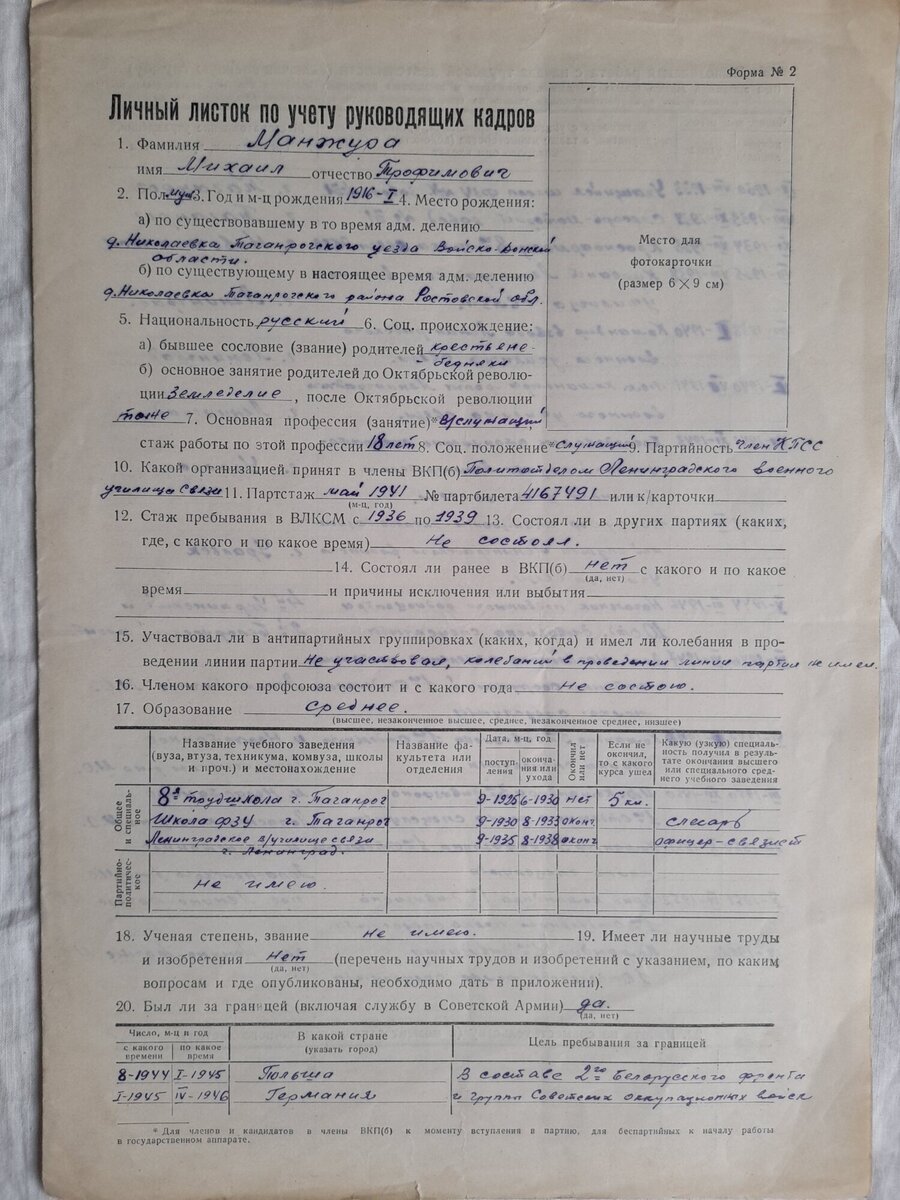 Форма № 2
Личный листок по учету руководящих кадров
1. Фамилия Манжура
имя Михаил отчество Трофимович
2. Пол муж 3. Год и м-ц рождения 1916-I 4. Место рождения:
а) по существовавшему в то время адм. делению
д. Николаевка Таганрогского уезда Войско-Донской
области.
б) по существующему в настоящее время адм. делению
д. Николаевка Таганрогского района Ростовской обл.
Место для
фотокарточки
(размер 6 × 9 см)
5. Национальность русский 6. Соц. происхождение:
а) бывшее сословие (звание) родителей крестьяне-
-бедняки
б) основное занятие родителей до Октябрьской револю-
ции Земледелие, после Октябрьской революции
тоже 7. Основная профессия (занятие)* в/служащий
стаж работы по этой профессии 18 лет 8. Соц. положение* служащий 9. Партийность член КПСС
10. Какой организацией принят в члены ВКП(б) Политотделом Ленинградского военного
училища связи 11. Партстаж май 1941 № партбилета 4167491 или к/карточки
(м-ц, год)
12. Стаж пребывания в ВЛКСМ с 1936 по 1939 13. Состоял ли в других партиях (каких,
где, с какого и по какое время) Не состоял.
14. Состоял ли ранее в ВКП(б) нет с какого и по какое
(да, нет)
время и причины исключения или выбытия
15. Участвовал ли в антипартийных группировках (каких, когда) и имел ли колебания в про-
ведении линии партии не участвовал, колебаний в проведении линии партии не имел.
16. Членом какого профсоюза состоит и с какого года Не состою.
17. Образование среднее.
(высшее, незаконченное высшее, среднее, незаконченное среднее, низшее)
Название учебного заведения (вуза, втуза, техникума, комвуза, школы и проч.) и местонахождение
Название факультета или отделения
Дата, м-ц, год
поступ-ления
оконча-ния или ухода
Окончил или нет
Если не окончил, то с какого курса ушел
Какую (узкую) специальность получил в результате окончания высшего или специального среднего учебного заведения
Общее и специальное
8я трудшкола г. Таганрог 9-1925 6-1930 нет 5 кл.
Школа ФЗУ г. Таганрог 9-1930 8-1933 оконч. слесарь
Ленинградское в/училище связи 9-1935 8-1938 оконч офицер-связист
г. Ленинград.
Партийно-политическое
Не имею.
18. Ученая степень, звание Не имею. 19. Имеет ли научные труды
и изобретения Нет (перечень научных трудов и изобретений с указанием, по каким
(да, нет)
вопросам и где опубликованы, необходимо дать в приложении).
20. Был ли за границей (включая службу в Советской Армии) да.
(да, нет)
Число, м-ц и год
с какого времени
по какое время
В какой стране
(указать город)
Цель пребывания за границей
8-1944 I-1945 Польша В составе 2го Белорусского фронта
I-1945 IV-1946 Германия и группы Советских оккупационных войск
* Для членов и кандидатов в члены ВКП(б) к моменту вступления в партию, для беспартийных к началу работы
в государственном аппарате.